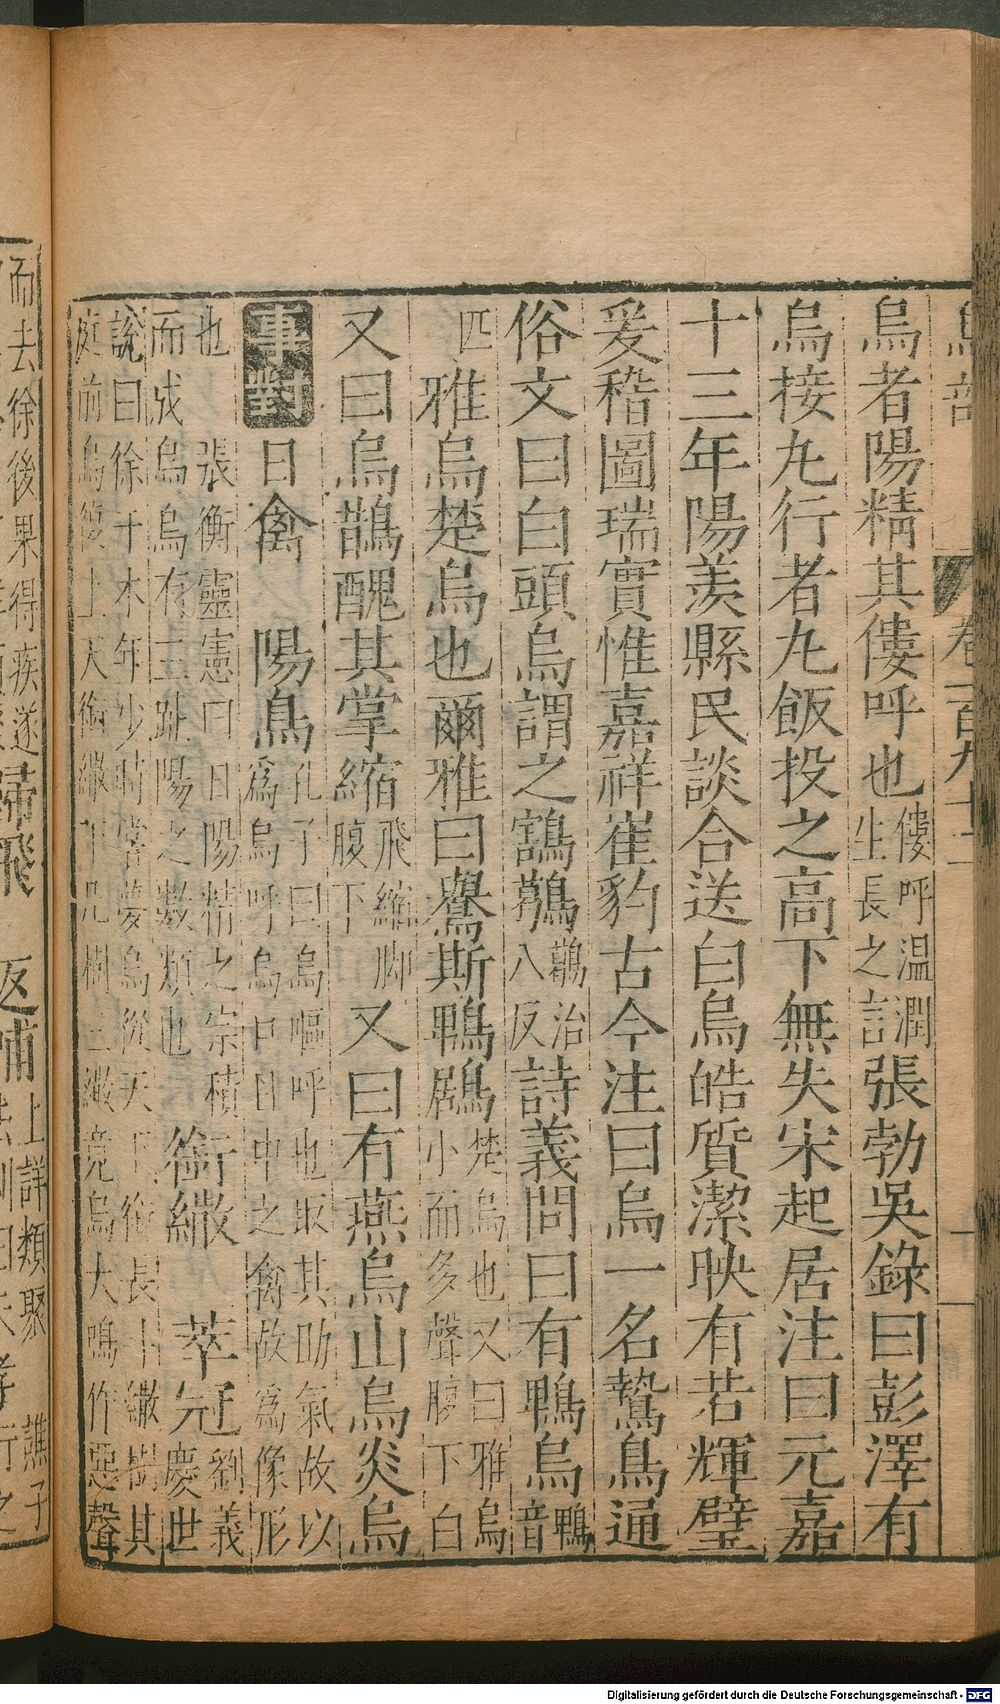 烏者陽精其僂呼也僂呼温潤生長之言張勃吳錄曰彭澤有
烏接九行者九飯投之高下無失宋起居注曰元嘉
十三年陽羨縣民談合送白烏皓質潔映有若輝璧
爰稽圖瑞實惟嘉祥崔豹古今注曰烏一名鷙鳥通
俗文曰白頭烏謂之鶷䴗䴗治八反詩義問曰有鴨烏鴨音
匹雅烏楚烏也爾雅曰鸒斯鴨鶋楚烏也又曰雅烏小而多聲腹下白
又曰烏鵲醜其掌縮飛縮脚腹下又曰有燕烏山烏炎烏
事對 日禽 陽烏孔子曰烏嘔呼也取其助氣故以爲烏呼烏曰日中之禽故爲像形
也張衡靈憲曰日陽精之宗積而成烏烏有三趾陽之數類也 銜繖 萃冠劉義慶世
說曰徐干木年少時嘗夢烏從天下銜長斗繖樹其庭前烏復上天銜繖下凡樹三繖竟烏大鳴作惡聲
而去徐後果得疾遂
歸飛 返哺上詳類聚 譙子
Digitalisierung gefördert durch die Deutsche Forschungsgemeinschaft - DFG